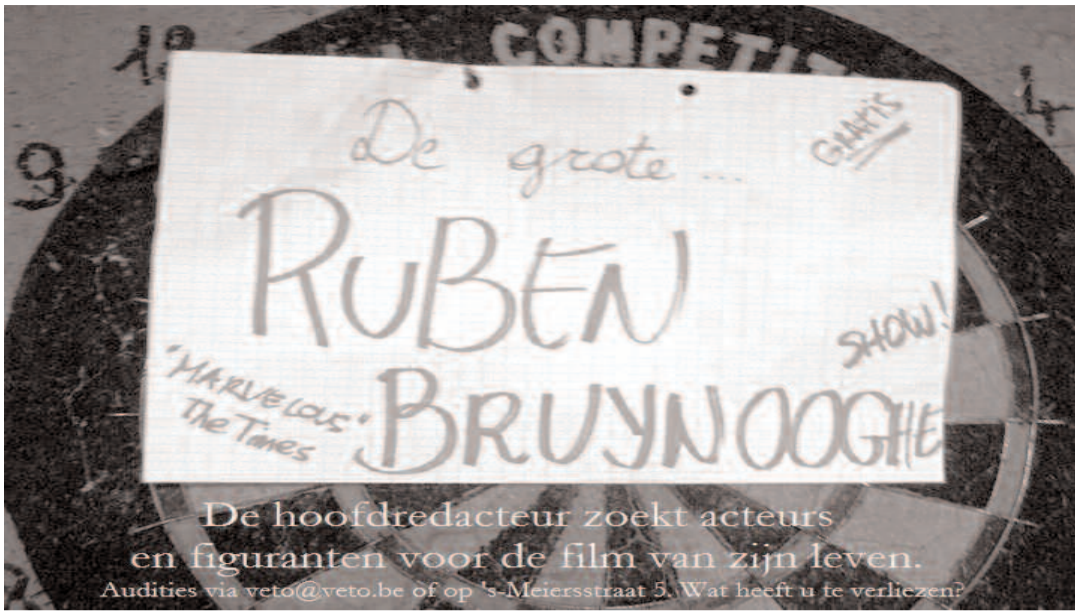 COMPETIT
9
4
De grote ...
GRATIS
RUBEN
SHOW!
"MARVELOUS"
The Times
BRUYNOOGHE
De hoofdredacteur zoekt acteurs
en figuranten voor de film van zijn leven.
Audities via veto@veto.be of op 's-Meiersstraat 5. Wat heeft u te verliezen?